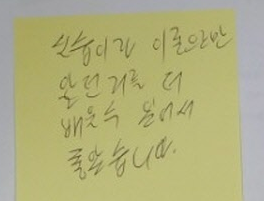 실습이라 이론으로만
알던거를 더
배울수 있어서
좋았습니다.